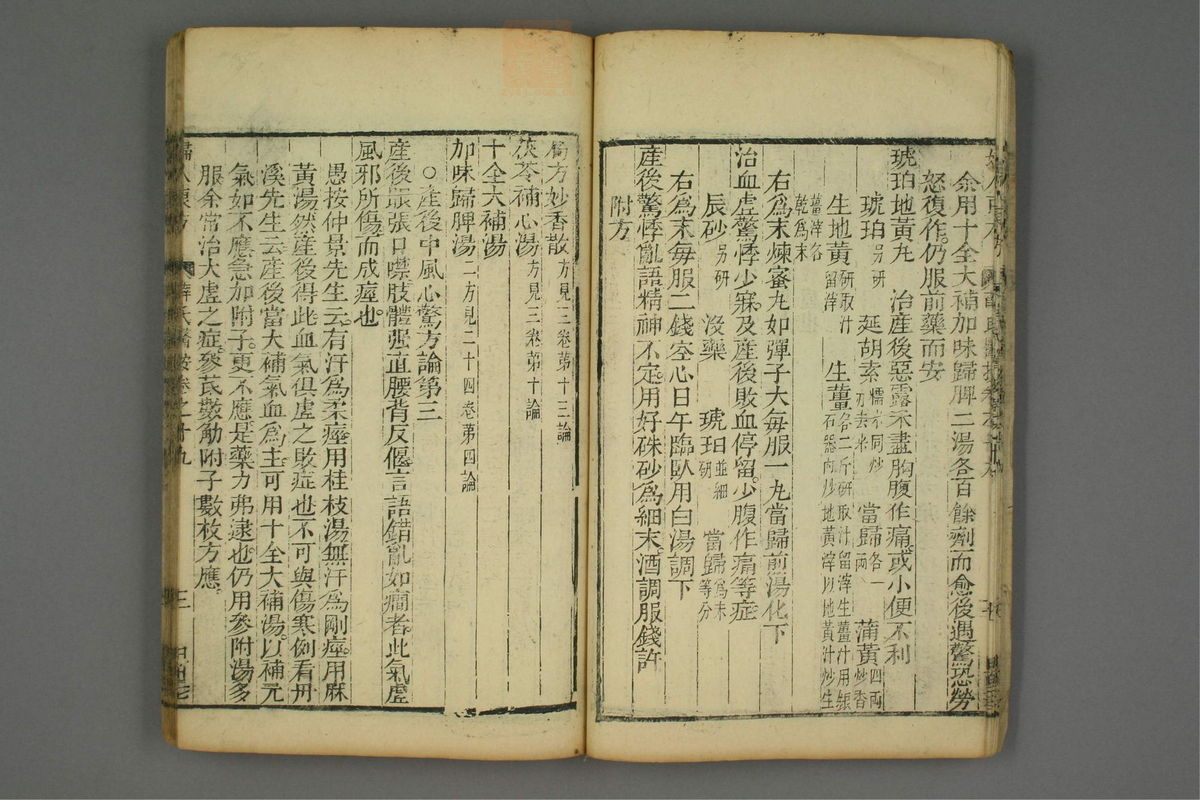 余用十全大補加味歸脾二湯各百餘劑而愈後遇驚恐勞
怒復作仍服前藥而安
琥珀地黃丸 治產後惡露未盡胸腹作痛或小便不利
琥珀另研 延胡索糯米同炒去米 當歸各一兩 蒲黃四兩炒香
生地黃研取汁留滓 生薑各二斤研取汁留滓生薑汁用銀石器內炒地黃滓以地黃汁炒生
薑滓各乾為末
右為末煉蜜丸如彈子大每服一丸當歸煎湯化下
治血虛驚悸少寐及產後敗血停留少腹作痛等症
辰砂另研 沒藥 琥珀並細研 當歸為末等分
右為末每服二錢空心日午臨臥用白湯調下
產後驚悸亂語精神不定用好硃砂為細末酒調服錢許
附方
局方妙香散方見三卷第十三論
茯苓補心湯方見三卷第十論
十全大補湯
加味歸脾湯二方見二十四卷第四論
○產後中風心驚方論第三
產後最張口噤肢體强直腰背反偃言語錯亂如癇者此氣虛
風邪所傷而成痙也
愚按仲景先生云有汗為柔痙用桂枝湯無汗為剛痙用麻
黃湯然產後得此血氣俱虛之敗症也不可與傷寒例看丹
溪先生云產後當大補氣血為主可用十全大補湯以補元
氣如不應急加附子更不應是藥力弗逮也仍用參附湯多
服余常治大虛之症參芪數觔附子數枚方應
婦人良方 薛氏醫按卷之十九 三